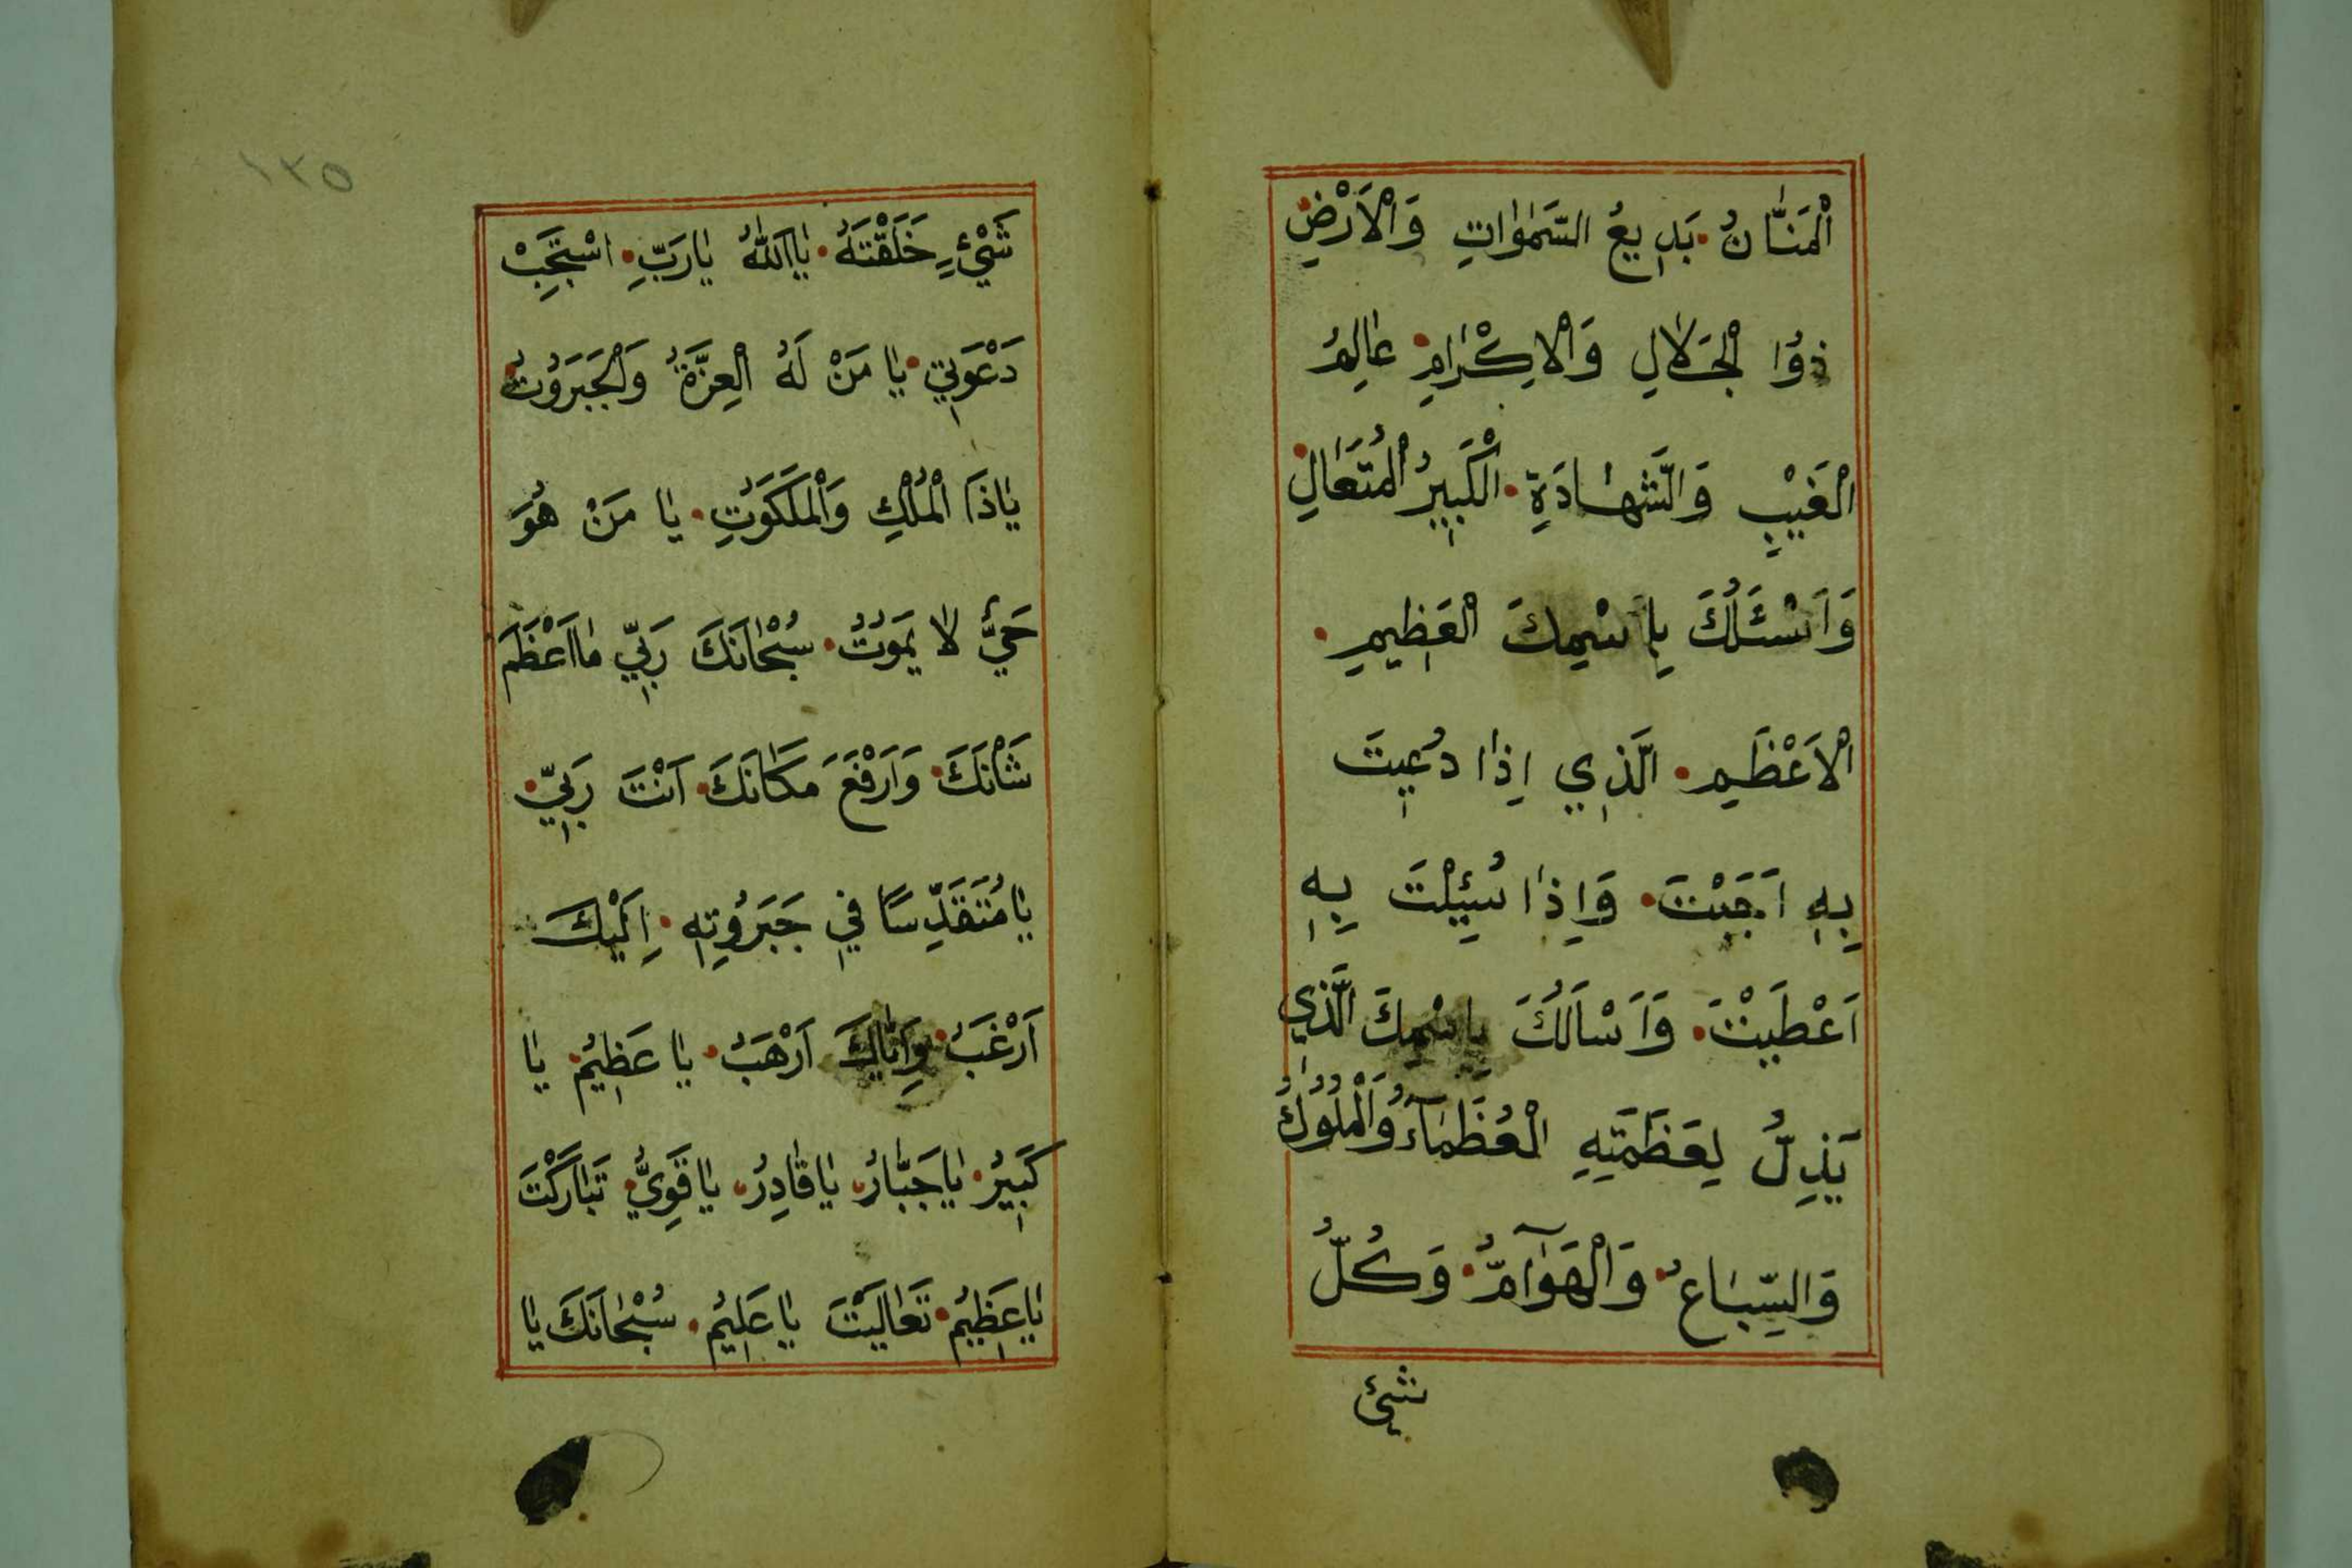 اَلْمَنَّانُ بَدِيعُ السَّمٰوَاتِ وَالْاَرْضِ
ذُوا الْجَلَالِ وَالْاِكْرَامِ عَالِمُ
الْغَيْبِ وَالشَّهَادَةِ الْكَبِيرُ الْمُتَعَالِ
وَاَسْئَلُكَ بِاسْمِكَ الْعَظِيمِ
الْاَعْظَمِ الَّذِي اِذَا دُعِيتَ
بِهِ اَجَبْتَ وَاِذَا سُئِلْتَ بِهِ
اَعْطَيْتَ وَاَسْاَلُكَ بِاسْمِكَ الَّذِي
يَذِلُّ لِعَظَمَتِهِ الْعُظَمَآءُ وَالْمُلُوكُ
وَالسِّبَاعُ وَالْهَوَآمُّ وَكُلُّ
شئ
شَيْءٍ خَلَقْتَهُ يَا اَللّٰهُ يَا رَبِّ اسْتَجِبْ
دَعْوَتِي يَا مَنْ لَهُ الْعِزَّةُ وَالْجَبَرُوتُ
يَا ذَا الْمُلْكِ وَالْمَلَكُوتِ يَا مَنْ هُوَ
حَيٌّ لَا يَمُوتُ سُبْحَانَكَ رَبِّي مَا اَعْظَمَ
شَاْنَكَ وَاَرْفَعَ مَكَانَكَ اَنْتَ رَبِّي
يَا مُتَقَدِّسًا فِي جَبَرُوتِهِ اِلَيْكَ
اَرْغَبُ وَاِيَّاكَ اَرْهَبُ يَا عَظِيمُ يَا
كَبِيرُ يَا جَبَّارُ يَا قَادِرُ يَا قَوِيُّ تَبَارَكْتَ
يَا عَظِيمُ تَعَالَيْتَ يَا عَلِيمُ سُبْحَانَكَ يَا
١٣٥